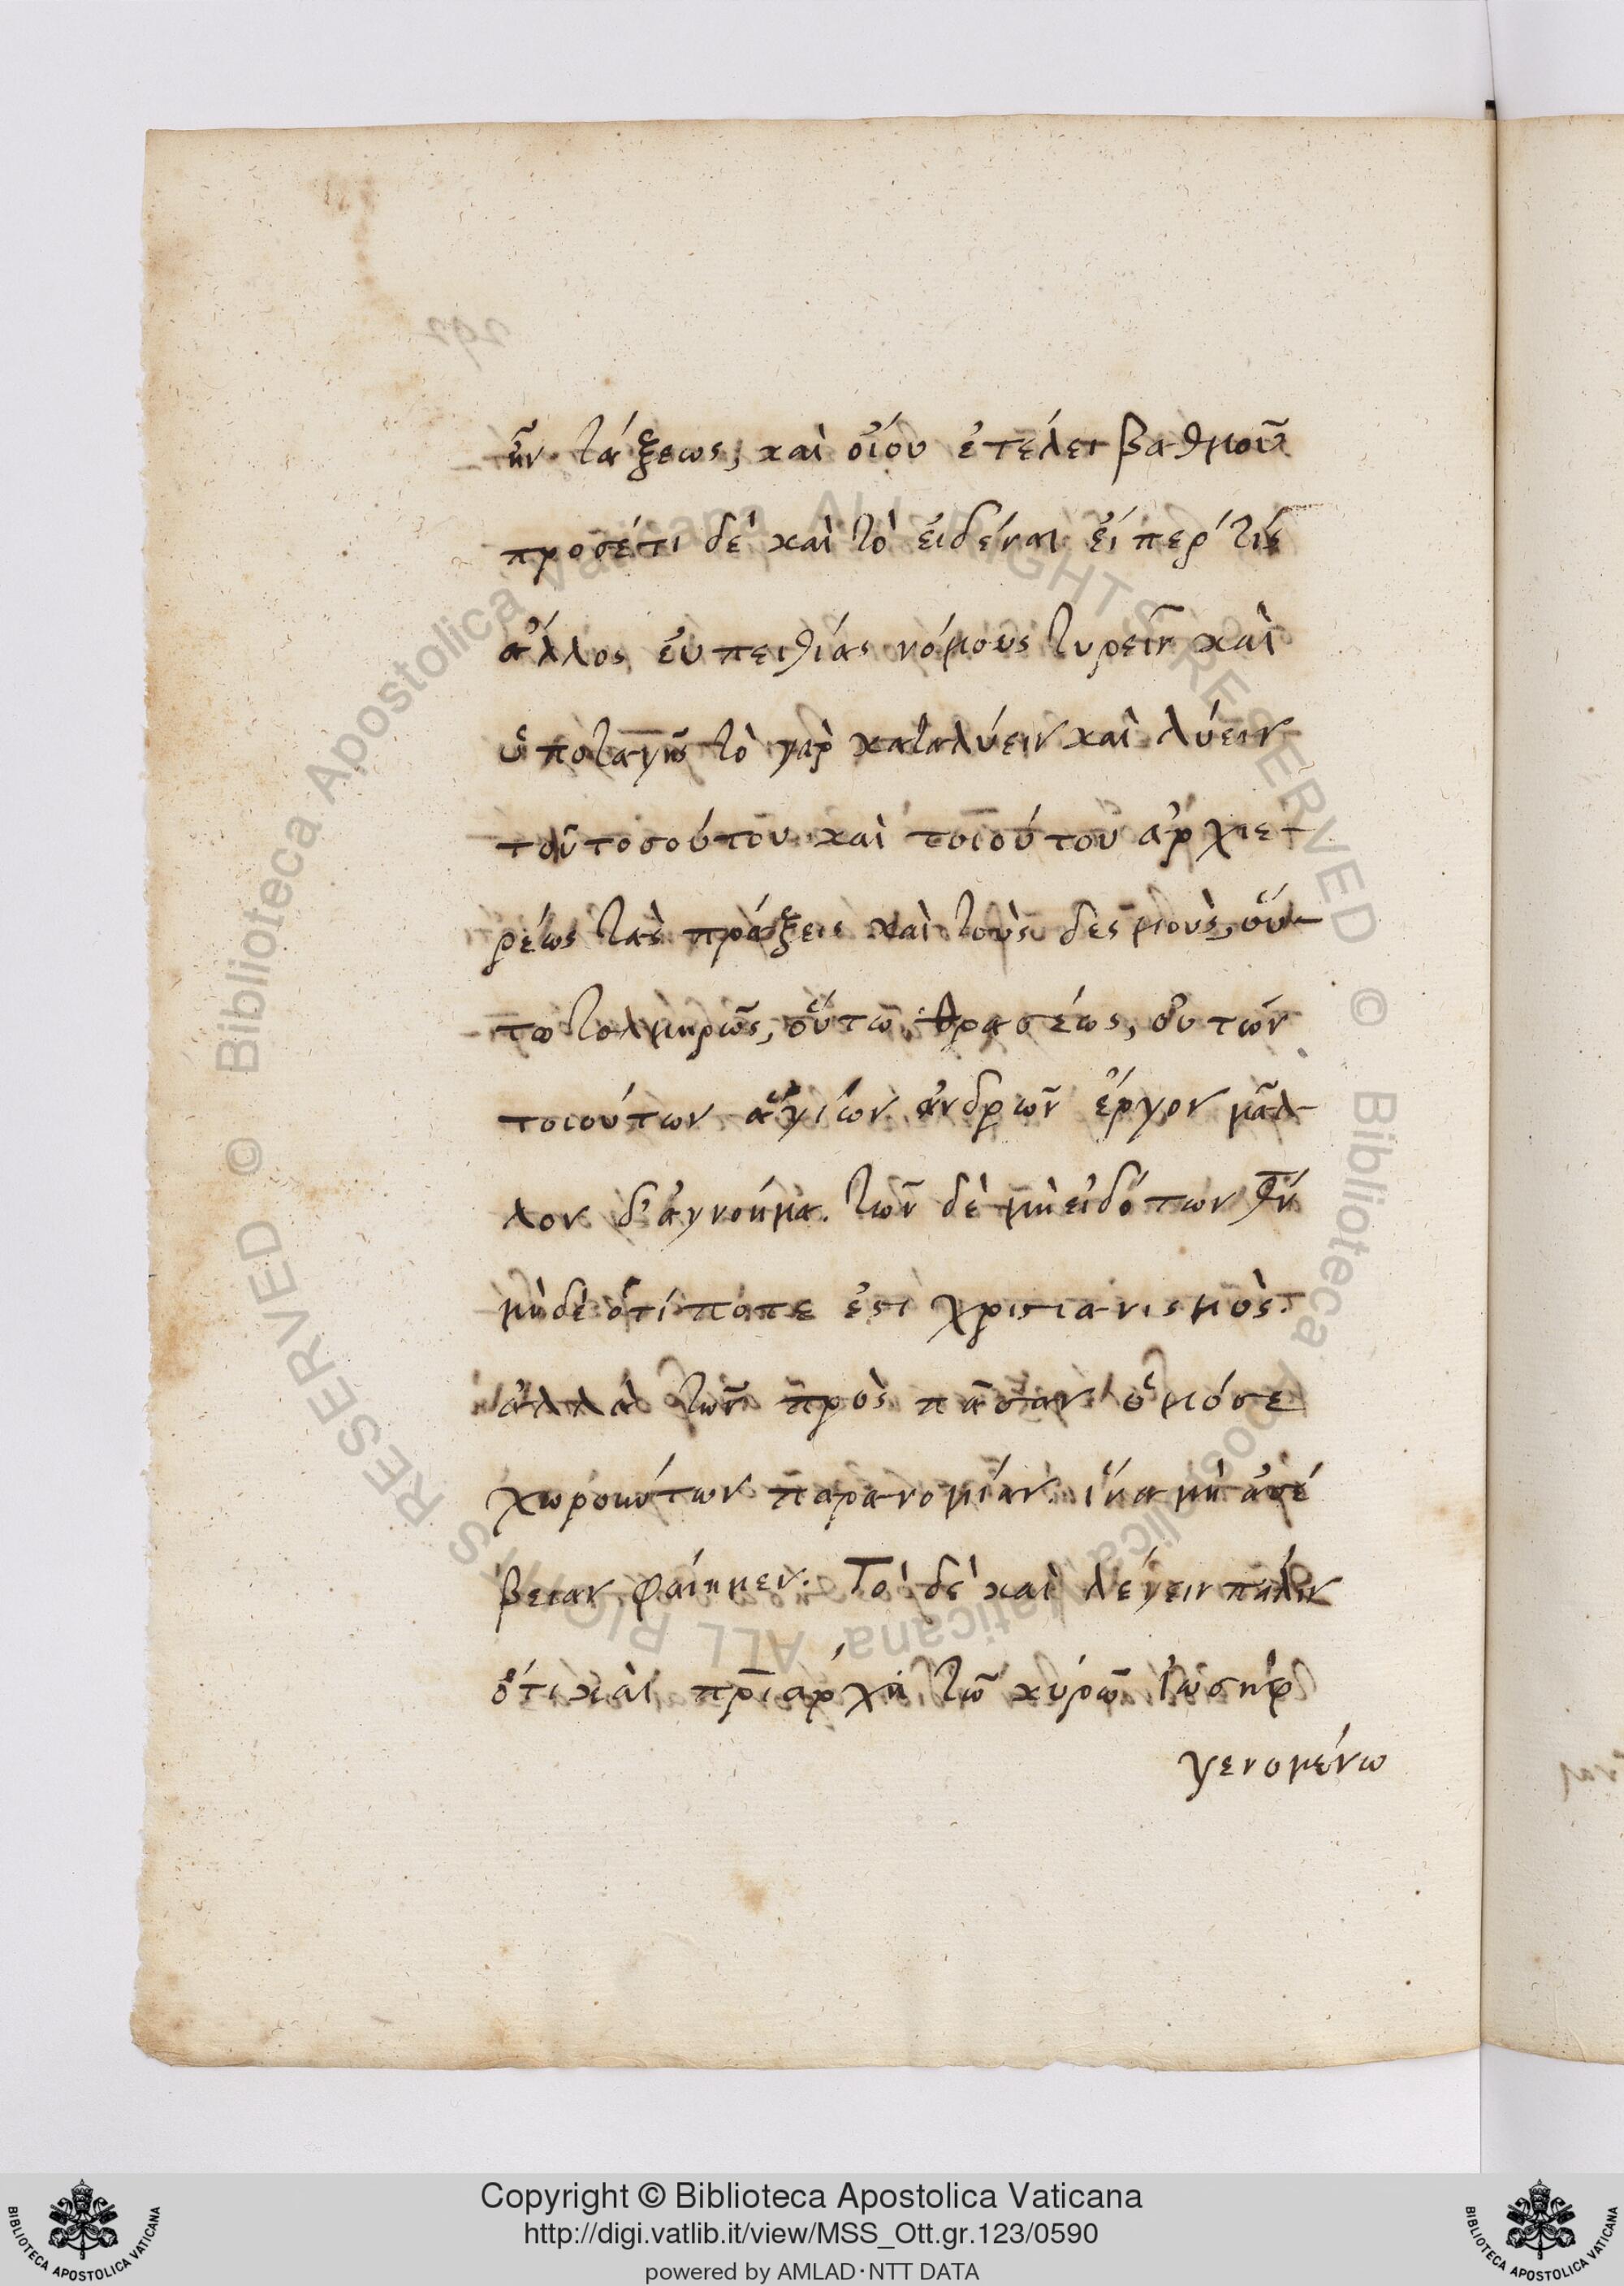 ἦν τάξεως, καὶ οἵου ἐτέλει βαθμοῦ
προσέτι δὲ καὶ τὸ εἰδέναι εἴπερ τίς
ἄλλος εὐπειθίας νόμους τηρεῖν καὶ
ὑποταγῆς τὸ γὰρ καταλύειν καὶ λύειν
τοῦ τοσούτου καὶ τοιούτου ἀρχιε-
ρέως τὰς πράξεις καὶ τοὺς δεσμοὺς, οὕ-
τω τολμηρῶς, οὕτω θρασέως, οὐ τῶν
τοιούτων ἁγίων ἀνδρῶν ἔργον μᾶλ-
λον δ' ἀγνοήμα. τῶν δὲ μὴ εἰδότων
μὴδὲ ὅτί ποτε ἐστὶ χριστιανισμὸς.
ἀλλὰ τῶν πρὸς πᾶσαν ὁμόσε
χωρούντων παρανομίαν. ἵνα μὴ ἀσέ
βειαν φαίημεν. Τὸ δὲ καὶ λέγειν πάλιν
ὅτι καὶ πριάρχῃ τῶ κυρῶ Ἰωσὴφ
γενομένω
© Biblioteca Apostolica Vaticana ALL RIGHTS RESERVED
© Biblioteca Apostolica Vaticana ALL RIGHTS RESERVED
Copyright © Biblioteca Apostolica Vaticana
http://digi.vatlib.it/view/MSS_Ott.gr.123/0590
powered by AMLAD·NTT DATA
BIBLIOTECA APOSTOLICA VATICANA
BIBLIOTECA APOSTOLICA VATICANA